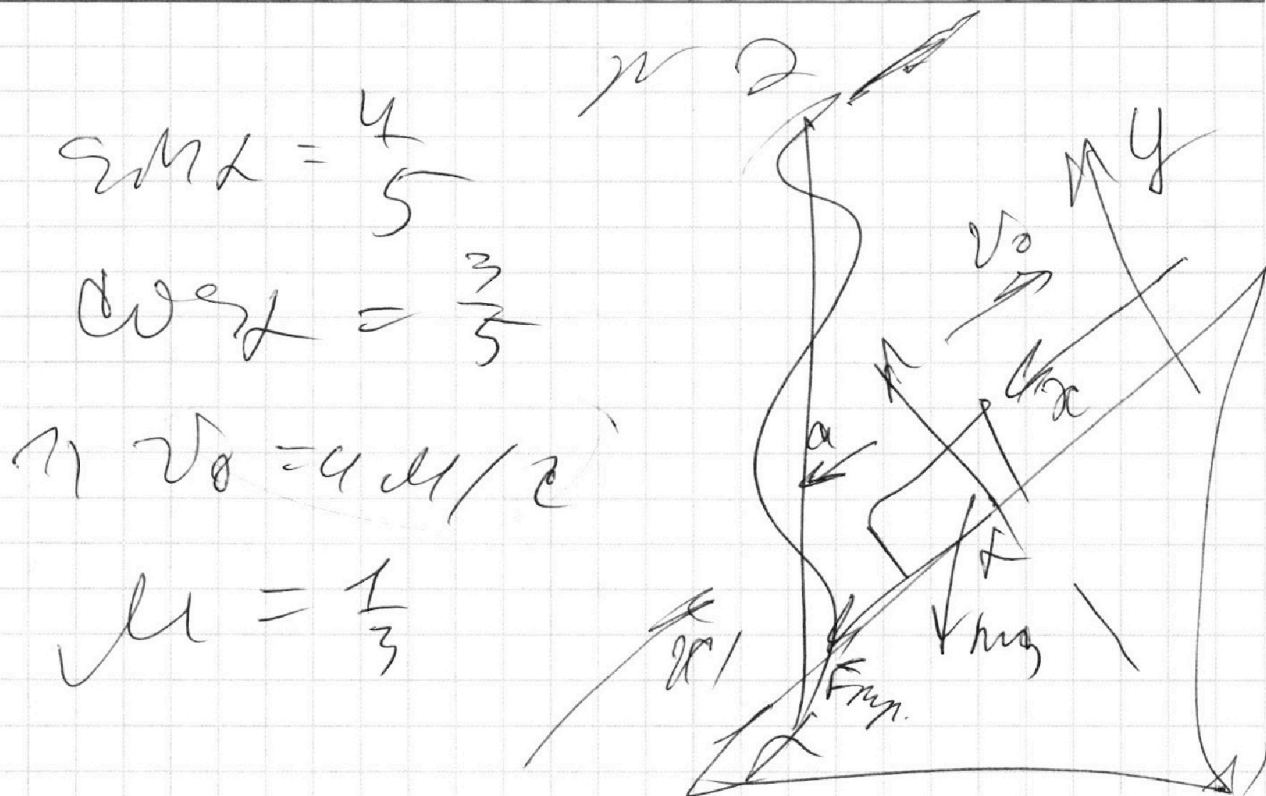 № 2
sin α = 4/5
cos α = 3/5
1) v₀ = 4 м/с
μ = 1/3
y
v₀
x
a
α
mg
x'
Fтр.
α